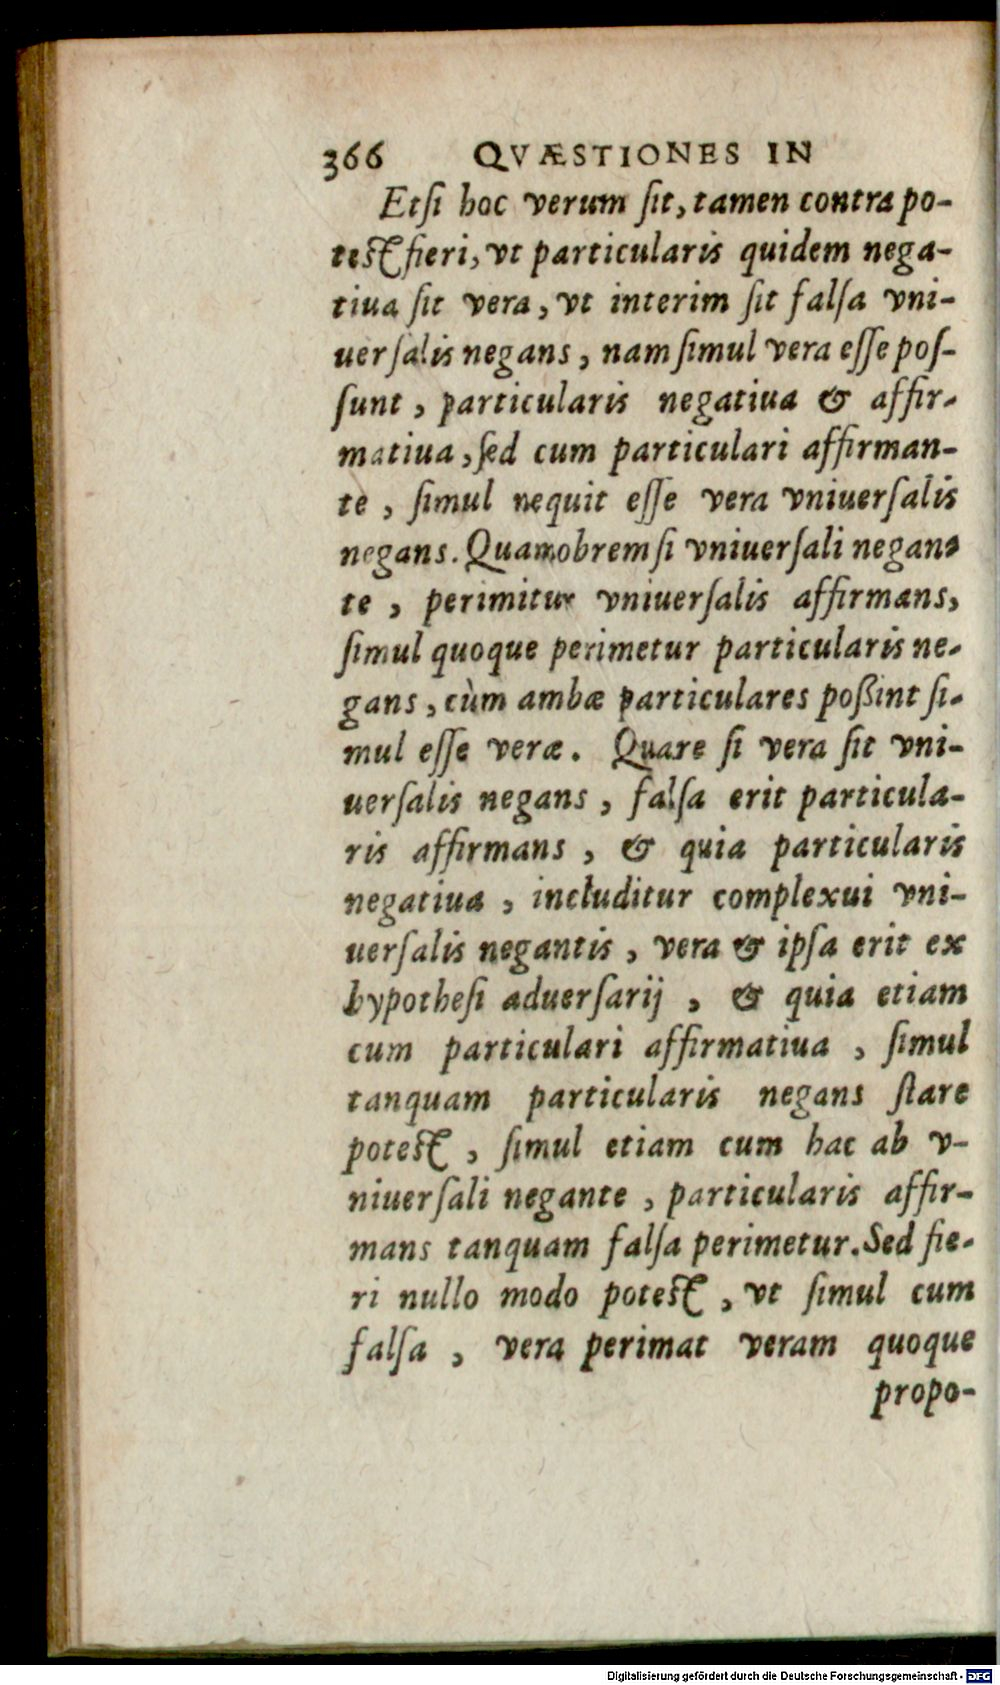 366 QVÆSTIONES IN
Etſi hoc verum ſit, tamen contra po-
teſt fieri, vt particularis quidem nega-
tiua ſit vera, vt interim ſit falſa vni-
uerſalis negans, nam ſimul vera eſſe poſ-
ſunt, particularis negatiua & affir-
matiua, ſed cum particulari affirman-
te, ſimul nequit eſſe vera vniuerſalis
negans. Quamobrem ſi vniuerſali negan-
te, perimitur vniuerſalis affirmans,
ſimul quoque perimetur particularis ne-
gans, cùm ambæ particulares poßint ſi-
mul eſſe veræ. Quare ſi vera ſit vni-
uerſalis negans, falſa erit particula-
ris affirmans, & quia particularis
negatiua, includitur complexui vni-
uerſalis negantis, vera & ipſa erit ex
hypotheſi aduerſarij, & quia etiam
cum particulari affirmatiua, ſimul
tanquam particularis negans ſtare
poteſt, ſimul etiam cum hac ab v-
niuerſali negante, particularis affir-
mans tanquam falſa perimetur. Sed fie-
ri nullo modo poteſt, vt ſimul cum
falſa, vera perimat veram quoque
propo-
Digitalisierung gefördert durch die Deutsche Forschungsgemeinschaft - DFG